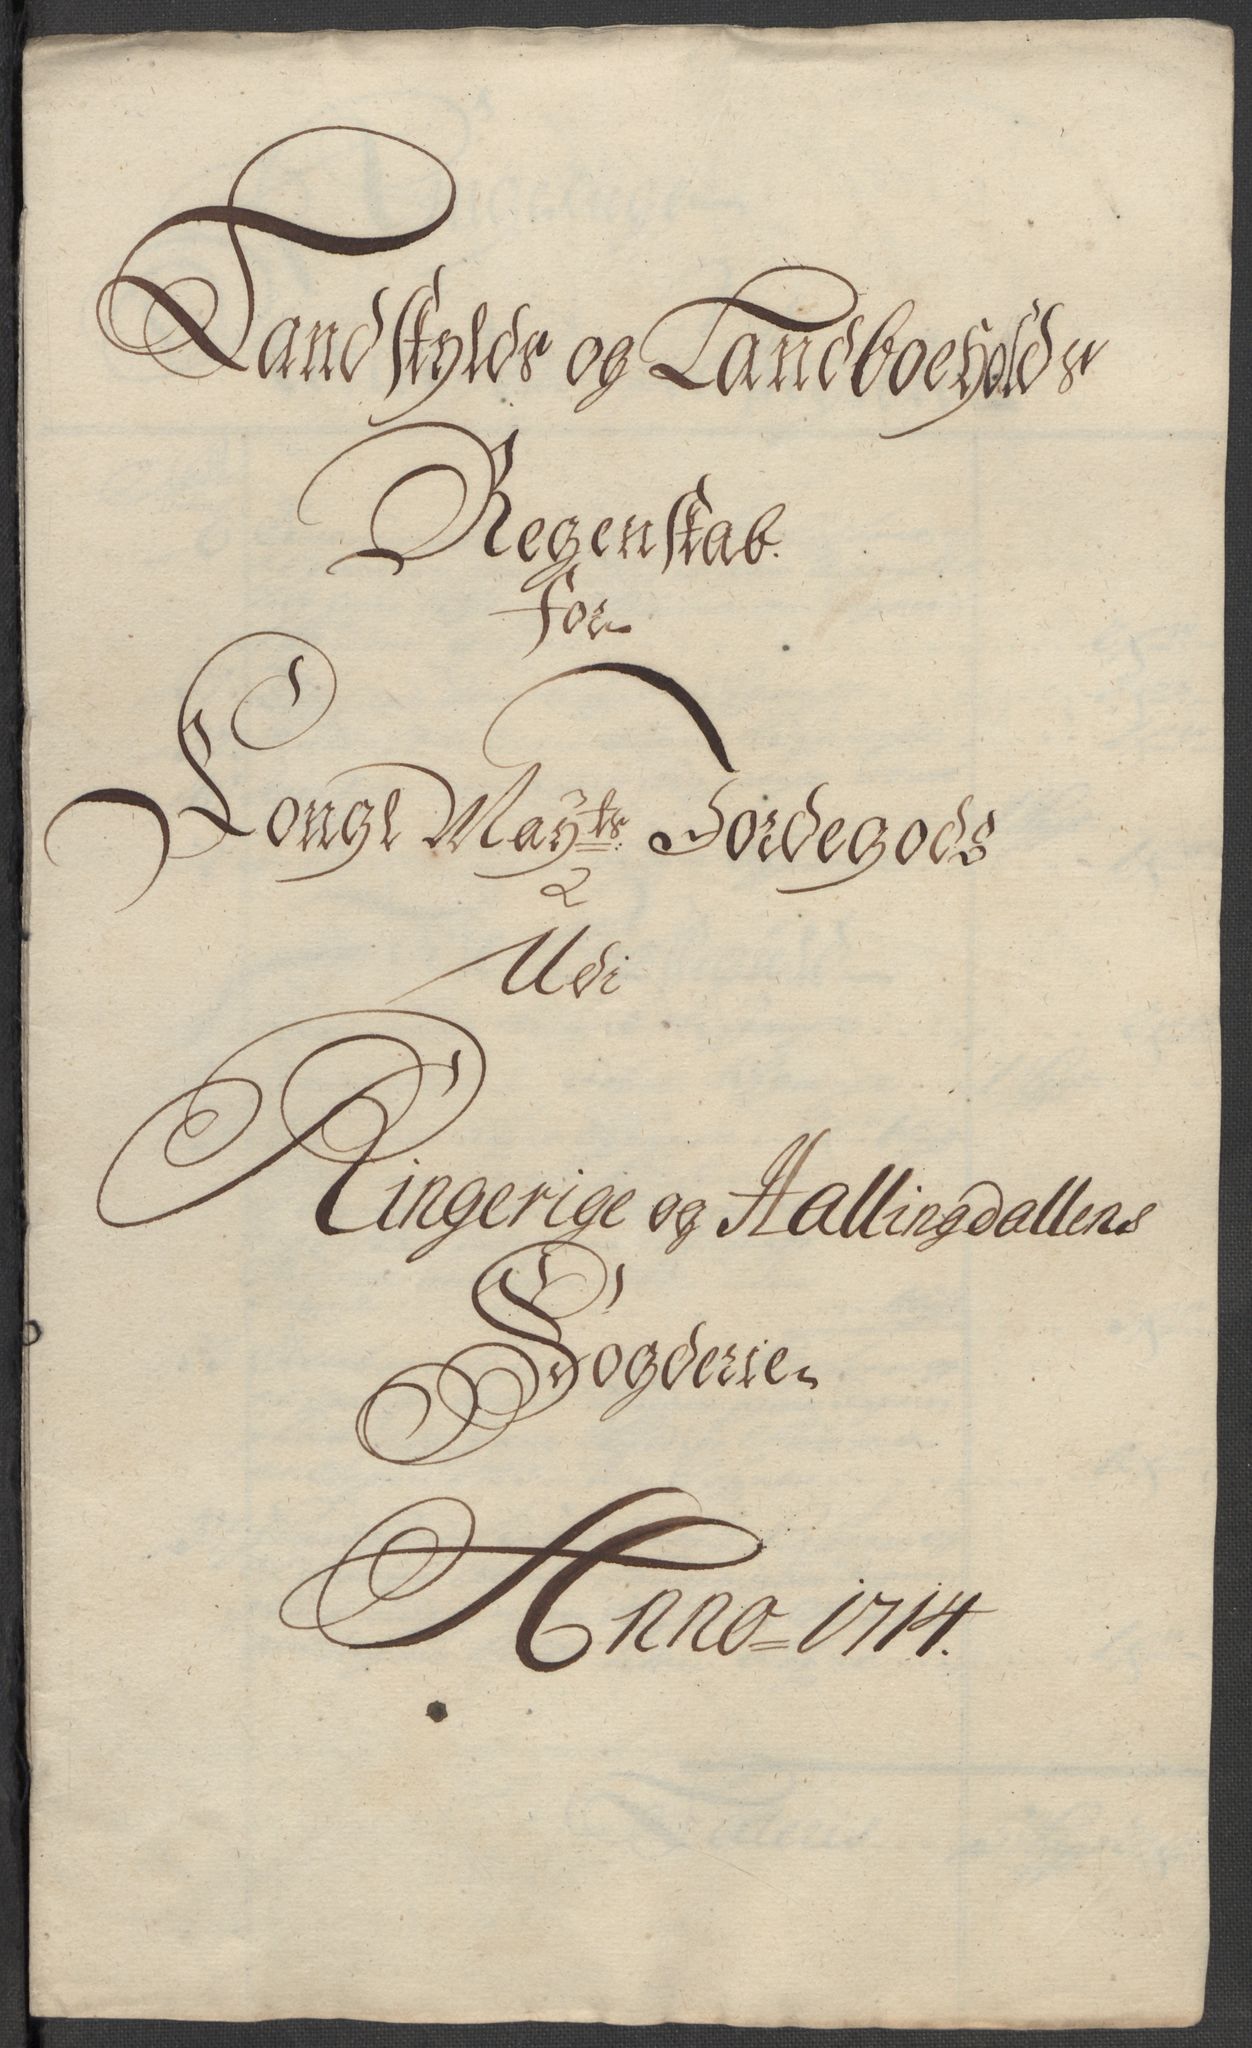 Landskylds og Landboeholds
Regenskab
for
Kongl Mayts: Jordegods
Udi
Ringerige og Hallingdallens
Fogderie
Anno = 1714.